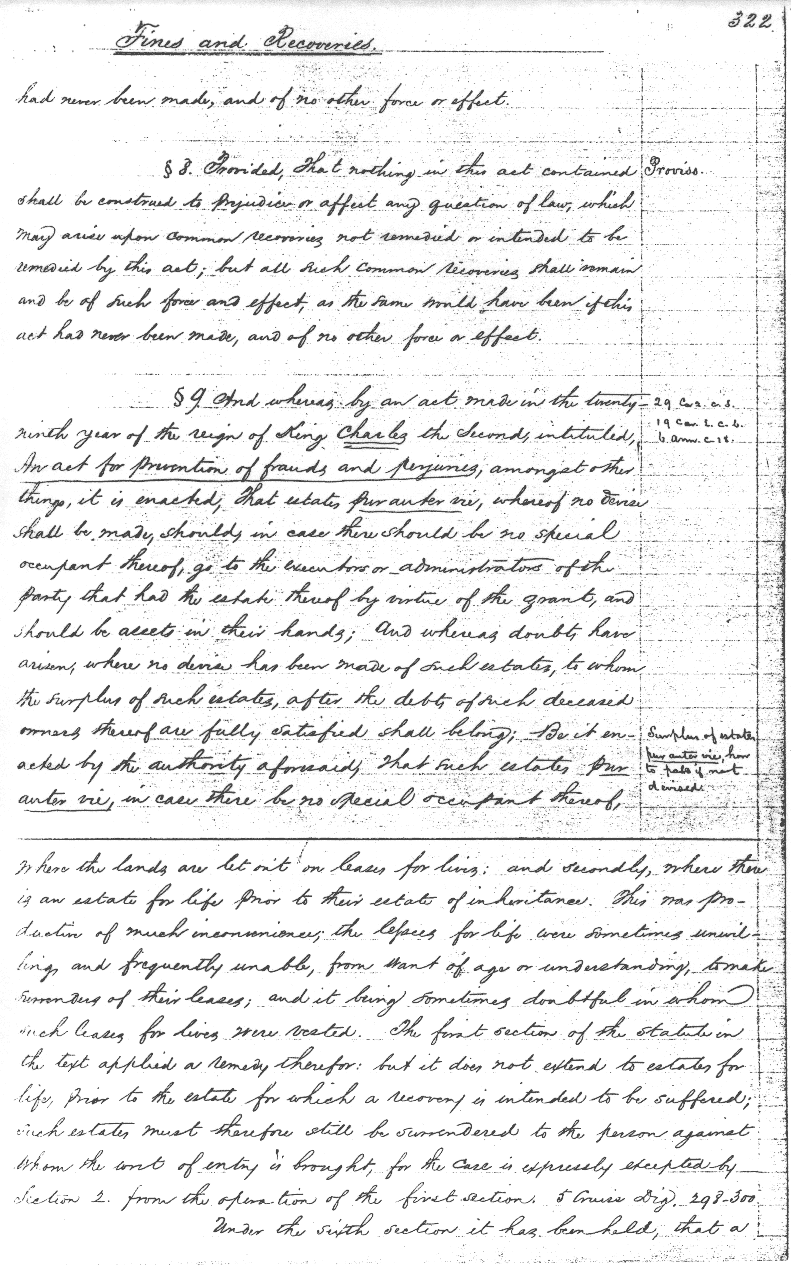 322
Fines and Recoveries.
had never been made, and of no other force or effect.
§ 8. Provided, That nothing in this act contained
Proviso.
shall be construed to prejudice or affect any question of law, which
may arise upon common recoveries not remedied or intended to be
remedied by this act; but all such common recoveries shall remain
and be of such force and effect, as the same would have been if this
act had never been made, and of no other force or effect.
§ 9. And whereas by an act made in the twenty-
29 Car. 2. c. 3.
ninth year of the reign of King Charles the Second, intituled,
19 Car. 2. c. 6.
6 Ann. c. 18.
An act for prevention of frauds and perjuries, amongst other
things, it is enacted, That estates pur auter vie, whereof no devise
shall be made, should, in case there should be no special
occupant thereof, go to the executors or administrators of the
party that had the estate thereof by virtue of the grant, and
should be assets in their hands; And whereas doubts have
arisen, where no devise has been made of such estates, to whom
the surplus of such estates, after the debts of such deceased
owners thereof are fully satisfied shall belong; Be it en-
Surplus of estates
pur auter vie, how
to pass if not
devised.
acted by the authority aforesaid, That such estates pur
auter vie, in case there be no special occupant thereof,
where the lands are let out on leases for lives; and secondly, where there
is an estate for life prior to their estate of inheritance. This was pro-
ductive of much inconvenience; the lessees for life were sometimes unwil-
ling, and frequently unable, from want of age or understanding, to make
surrenders of their leases; and it being sometimes doubtful in whom
such leases for lives were vested. The first section of the statute in
the text applied a remedy therefor: but it does not extend to estates for
life, prior to the estate for which a recovery is intended to be suffered;
such estates must therefore still be surrendered to the person against
whom the writ of entry is brought, for the case is expressly excepted by
Section 2. from the operation of the first section. 5 Cruise Dig. 298-300
Under the sixth section it has been held, that a